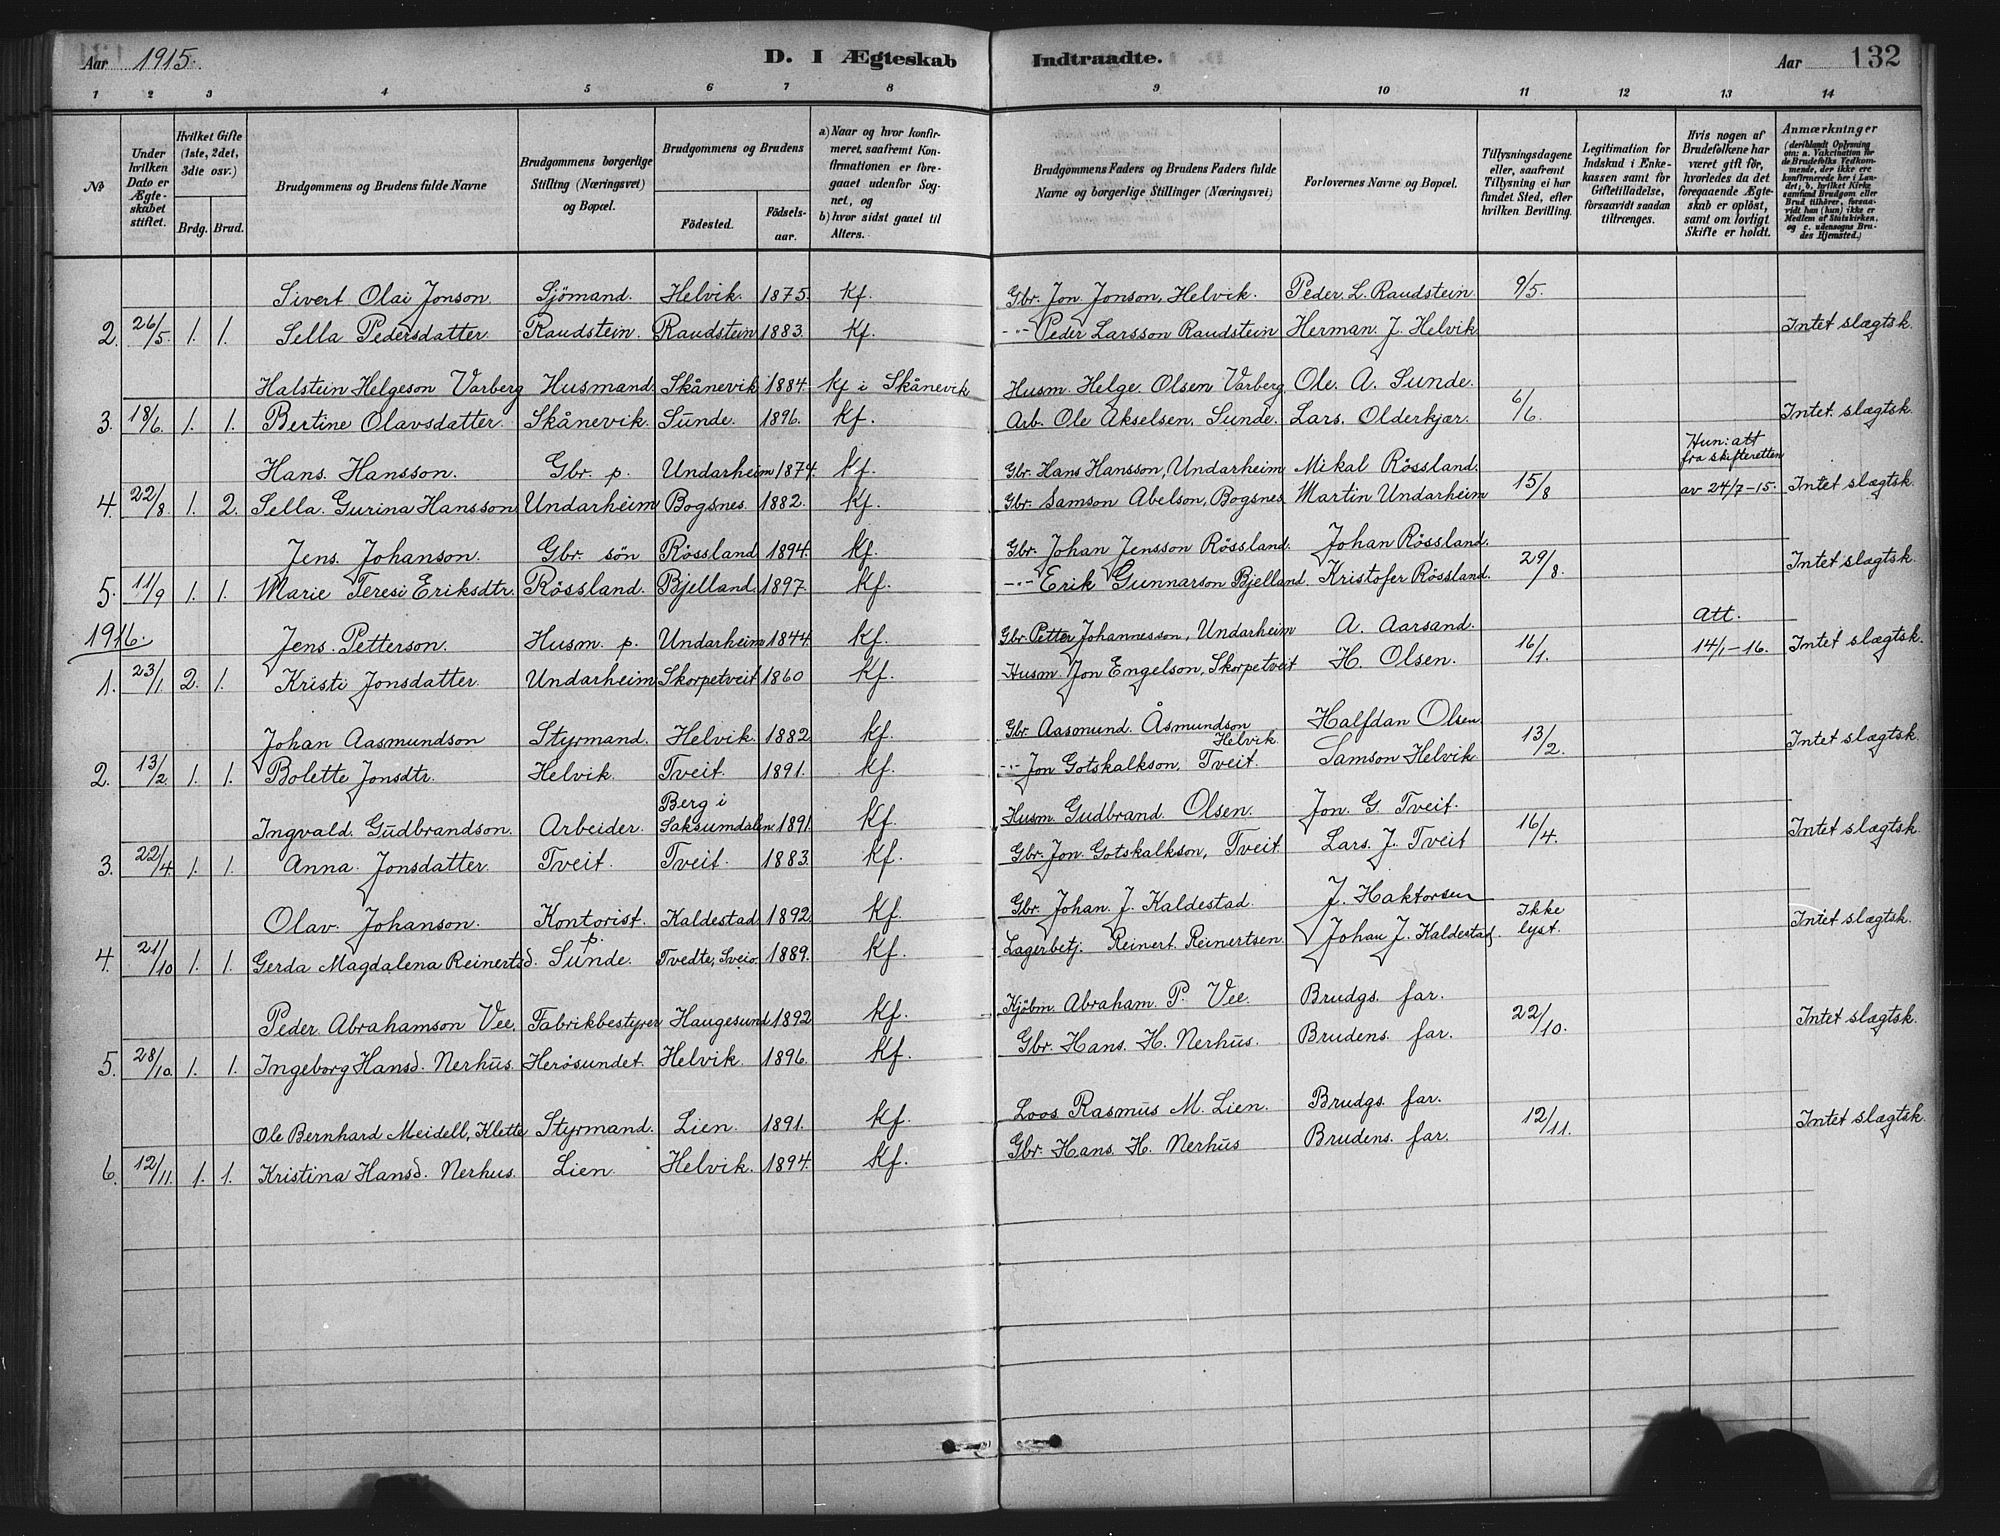 Aar 1915. D. I Ægteskab Indtraadte. Aar 132
1 2 3 4 5 6 7 8 9 10 11 12 13 14
No
Under hvilken Dato er Ægteskabet stiftet.
Hvilket Gifte (1ste, 2det, 3die osv.)
Brdg. Brud.
Brudgommens og Brudens fulde Navne
Brudgommens borgerlige Stilling (Næringsvei) og Bopæl.
Brudgommens og Brudens
Fødested. Fødsels-aar.
a) Naar og hvor konfirmeret, saafremt Konfirmationen er foregaaet udenfor Sognet, og
b) hvor sidst gaaet til Alters.
Brudgommens Faders og Brudens Faders fulde Navne og borgerlige Stillinger (Næringsvei)
Forlovernes Navne og Bopæl.
Tillysningsdagene eller, saafremt Tillysning ei har fundet Sted, efter hvilken Bevilling.
Legitimation for Indskud i Enkekassen samt for Giftetilladelse, forsaavidt saadan tiltrænges.
Hvis nogen af Brudefolkene har været gift før, hvorledes da det foregaaende Ægteskab er opløst, samt om lovligt Skifte er holdt.
Anmærkninger (deriblandt Oplysning om: a. Vakcination for de Brudefolks Vedkommende, der ikke ere konfirmerede her i Landet; b. hvilket Kirkesamfund Brudgom eller Brud tilhører, forsaavidt han (hun) ikke er Medlem af Statskirken, og c. udensogns Brudes Hjemsted.)
Sivert Olai Jonson. Sjömand. Helvik. 1875. Kf. Gbr. Jon Jonson, Helvik. Peder L. Raudstein 9/5.
2. 26/5 1. 1. Sella Pedersdatter Raudstein. Raudstein 1883. Kf. -"- Peder Larsson Raudstein Herman J. Helvik Intet slægtsk.
Halstein Helgeson Varberg Husmand. Skånevik 1884. Kf i Skånevik Husm. Helge Olsen Varberg. Ole. A. Sunde. 6/6
3. 18/6 1. 1. Bertine Olavsdatter. Skånevik. Sunde. 1896. Kf. Arb. Ole Akselsen, Sunde. Lars. Olderkjær. Intet slægtsk.
Hans. Hansson. Gbr. p. Undarheim 1874. Kf. Gbr. Hans Hansson, Undarheim Mikal Rössland. 15/8 Hun: att fra skifteretten
4. 22/8 1. 2. Sella. Gurina Hansson Undarheim Bogsnes. 1882. Kf. Gbr. Samson Abelson, Bogsnes Martin Undarheim av 24/7-15. Intet slægtsk.
Jens. Johanson. Gbr. søn Rössland 1894. Kf. Gbr. Johan Jensson Rössland. Johan Rössland. 29/8.
5. 11/9 1. 1. Marie Teresi Eriksdtr. Rössland. Bjelland. 1897. Kf. -"- Erik Gunnarson Bjelland. Kristofer Rössland. Intet slægtsk.
1916. Jens. Petterson. Husm. p. Undarheim 1844. Kf. Gbr. Petter Johannesson, Undarheim A. Aarsand. 16/1. Att. 14/1-16.
1. 23/1 2. 1. Kristi Jonsdatter Undarheim Skorpetveit 1860 Kf. Husm. Jon Engelson, Skorpetveit H. Olsen. Intet slægtsk.
Johan Aasmundson Styrmand. Helvik. 1882. Kf. Gbr. Aasmund. Åsmundson Helvik. Halfdan Olsen. 13/2.
2. 13/2 1. 1. Bolette Jonsdtr. Helvik. Tveit. 1891. Kf. -"- Jon Gotskalkson, Tveit. Samson Helvik Intet slægtsk.
Ingvald. Gudbrandson. Arbeider. Berg i Saksumdalen 1891. Kf. Husm. Gudbrand Olsen. Jon. G. Tveit. 16/4.
3. 22/4 1. 1. Anna. Jonsdatter. Tveit. Tveit. 1883. Kf. Gbr. Jon. Gotskalkson, Tveit. Lars. J. Tveit Intet slægtsk.
Olav. Johanson. Kontorist. Kaldestad 1892. Kf. Gbr. Johan. J. Kaldestad. J. Haktorsen Ikke lyst.
4. 21/10 1. 1. Gerda Magdalena Reinertsd. p. Sunde. Tvedte, Sveio. 1889. Kf. Lagerbetj. Reinert. Reinertsen. Johan J. Kaldestad. Intet slægtsk.
Peder. Abrahamson Vee. Fabrikbestyrer Haugesund 1892 Kf. Kjöbm. Abraham. P. Vee. Brudgs. far. 22/10.
5. 28/10 1. 1. Ingeborg Hansd. Nerhus. Herösundet. Helvik. 1896. Kf. Gbr. Hans. H. Nerhus. Brudens. far. Intet slægtsk.
Ole Bernhard Meidell, Klette Styrmand. Lien. 1891. Kf. Loos Rasmus M. Lien. Brudgs. far. 12/11.
6. 12/11. 1. 1. Kristina Hansd. Nerhus. Lien. Helvik. 1894. Kf. Gbr. Hans. H. Nerhus Brudens. far. Intet slægtsk.